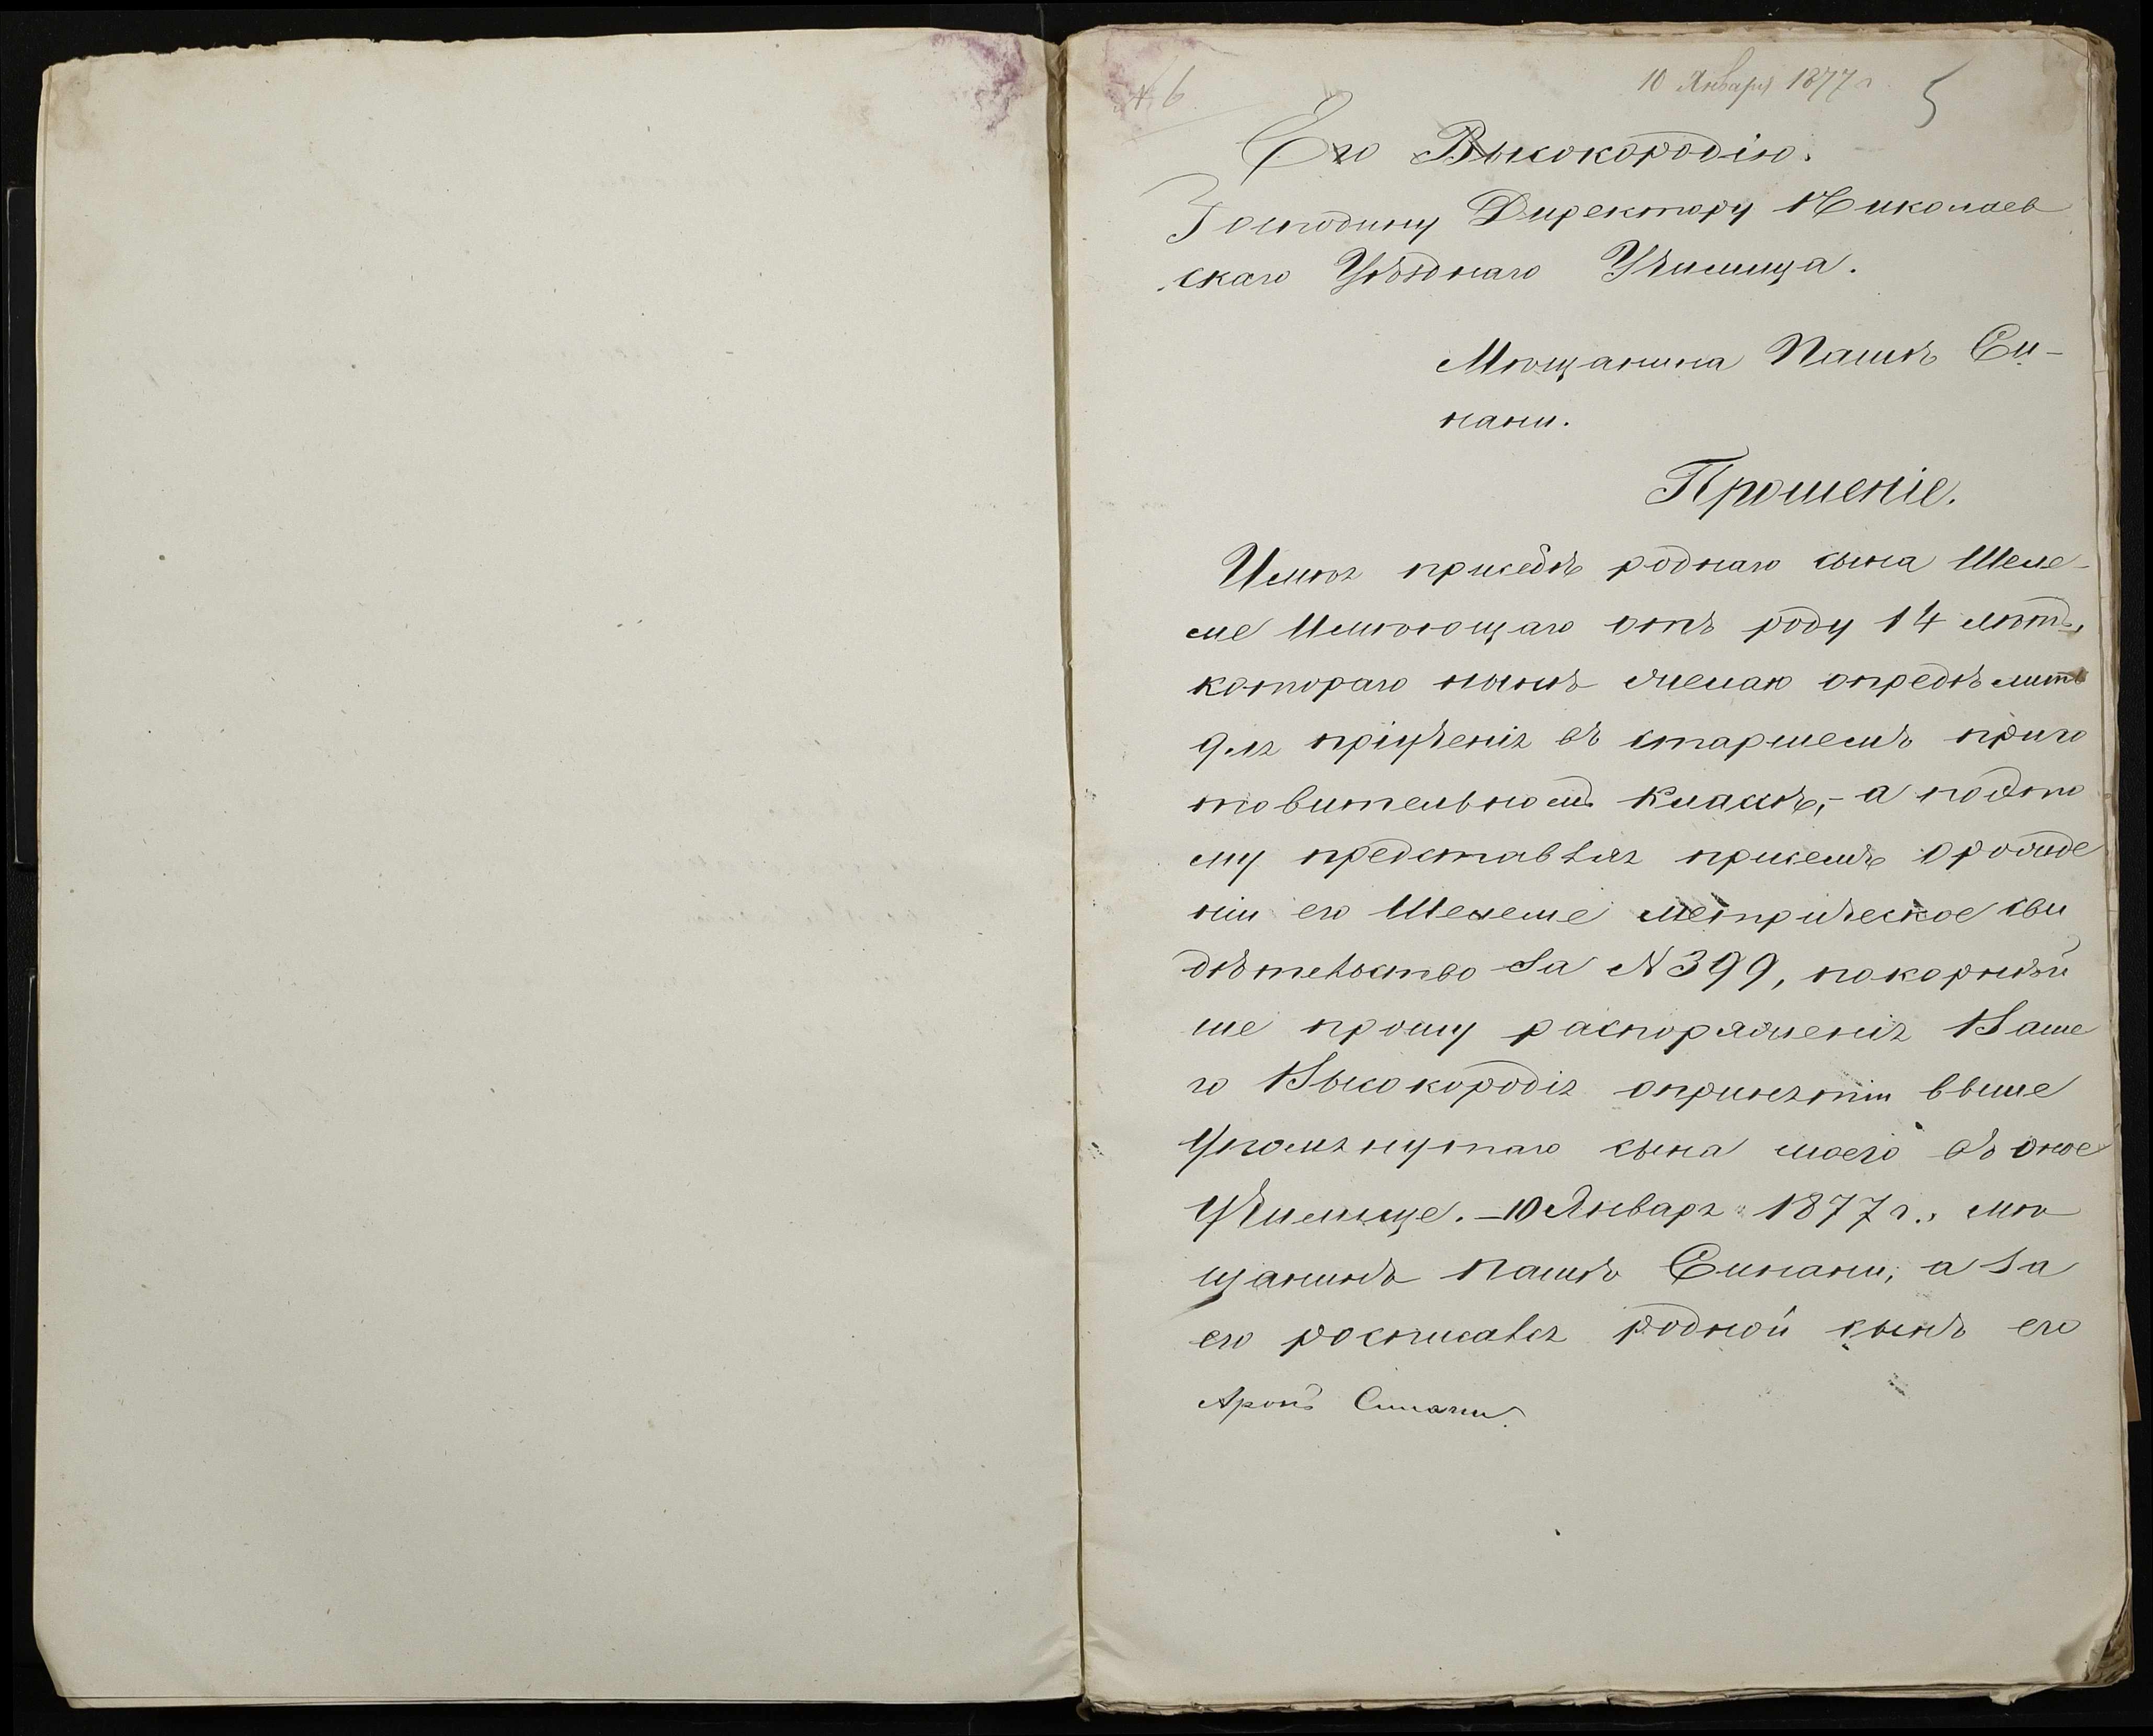 № 6
10 Января 1877 г.
5
Его Высокородію.
Господину Директору Николаев
скаго Уѣзднаго Училища.
Мѣщанина Пашъ Си-
нани.
Прошеніе.
Имѣя присебѣ роднаго сына Шеле-
ме Имѣющаго отъ роду 14 лѣтъ,
котораго нынѣ желаю опредѣлить
для пріученія въ старшемъ приго
товительномъ Класѣ,- а подто
му представляя присемъ орожде
ніи его Шелеме метрическое сви
дѣтельство за № 399, покорнѣй
ше прошу распоряженія Ваше
го Высокородія опринятіи выше
Упомянутаго сына моего въ оное
Училище. – 10 Января 1877 г., мѣ
щанинъ Пашъ Синани, а за
его росписался родной сынъ его
Аронъ Синани.